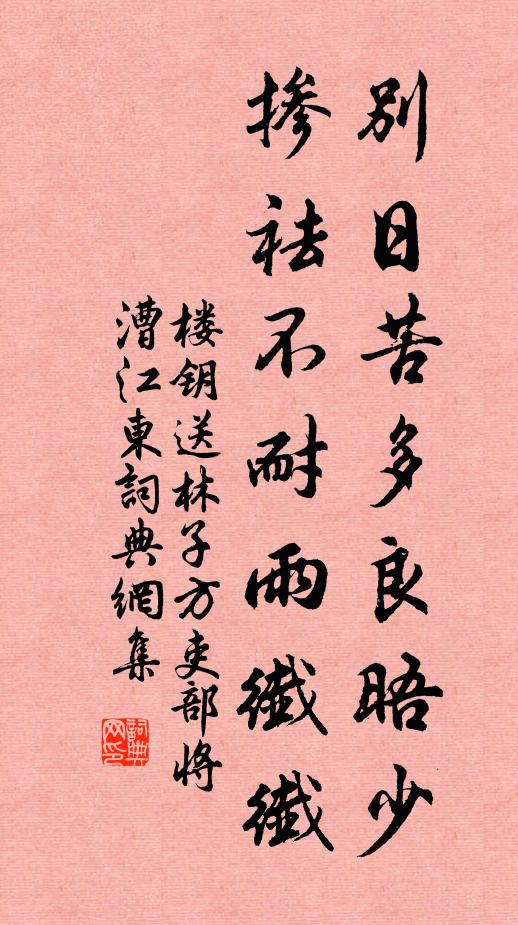 别日苦多良晤少
掺祛不耐雨纎纎
楼钥送林子方吏部将
漕江東詞典網集
詞典網印